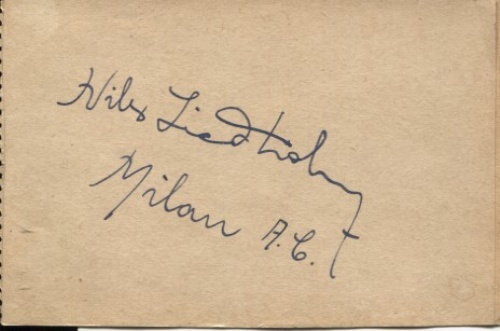 Nils Liedholm
Milan A.C.